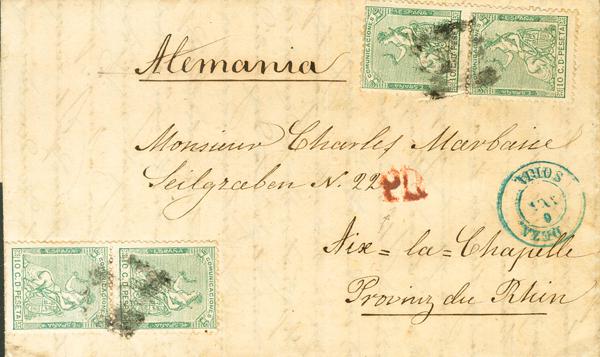 Alemania
ESPAÑA
COMUNICACIONES
10 C. D PESETA
ESPAÑA
COMUNICACIONES
10 C. D PESETA
Monsieur Charles Marbaise
Seilgraeben N. 22
PD
Aix=la=Chapelle
Provinz du Rhin
SORIA
ESPAÑA
COMUNICACIONES
10 C. D PESETA
ESPAÑA
COMUNICACIONES
10 C. D PESETA